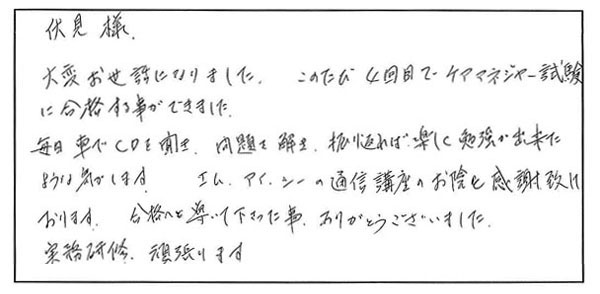 伏見 様.
大変お世話になりました. このたび 4回目で ケアマネジャー試験
に合格する事ができました.
毎日 車で CDを聞き、問題を解き、振り返れば楽しく勉強が出来た
ような気がします. エム、アイ、シーの通信講座のお陰と感謝致して
おります. 合格へと導いて下さった事、ありがとうございました.
実務研修、頑張ります